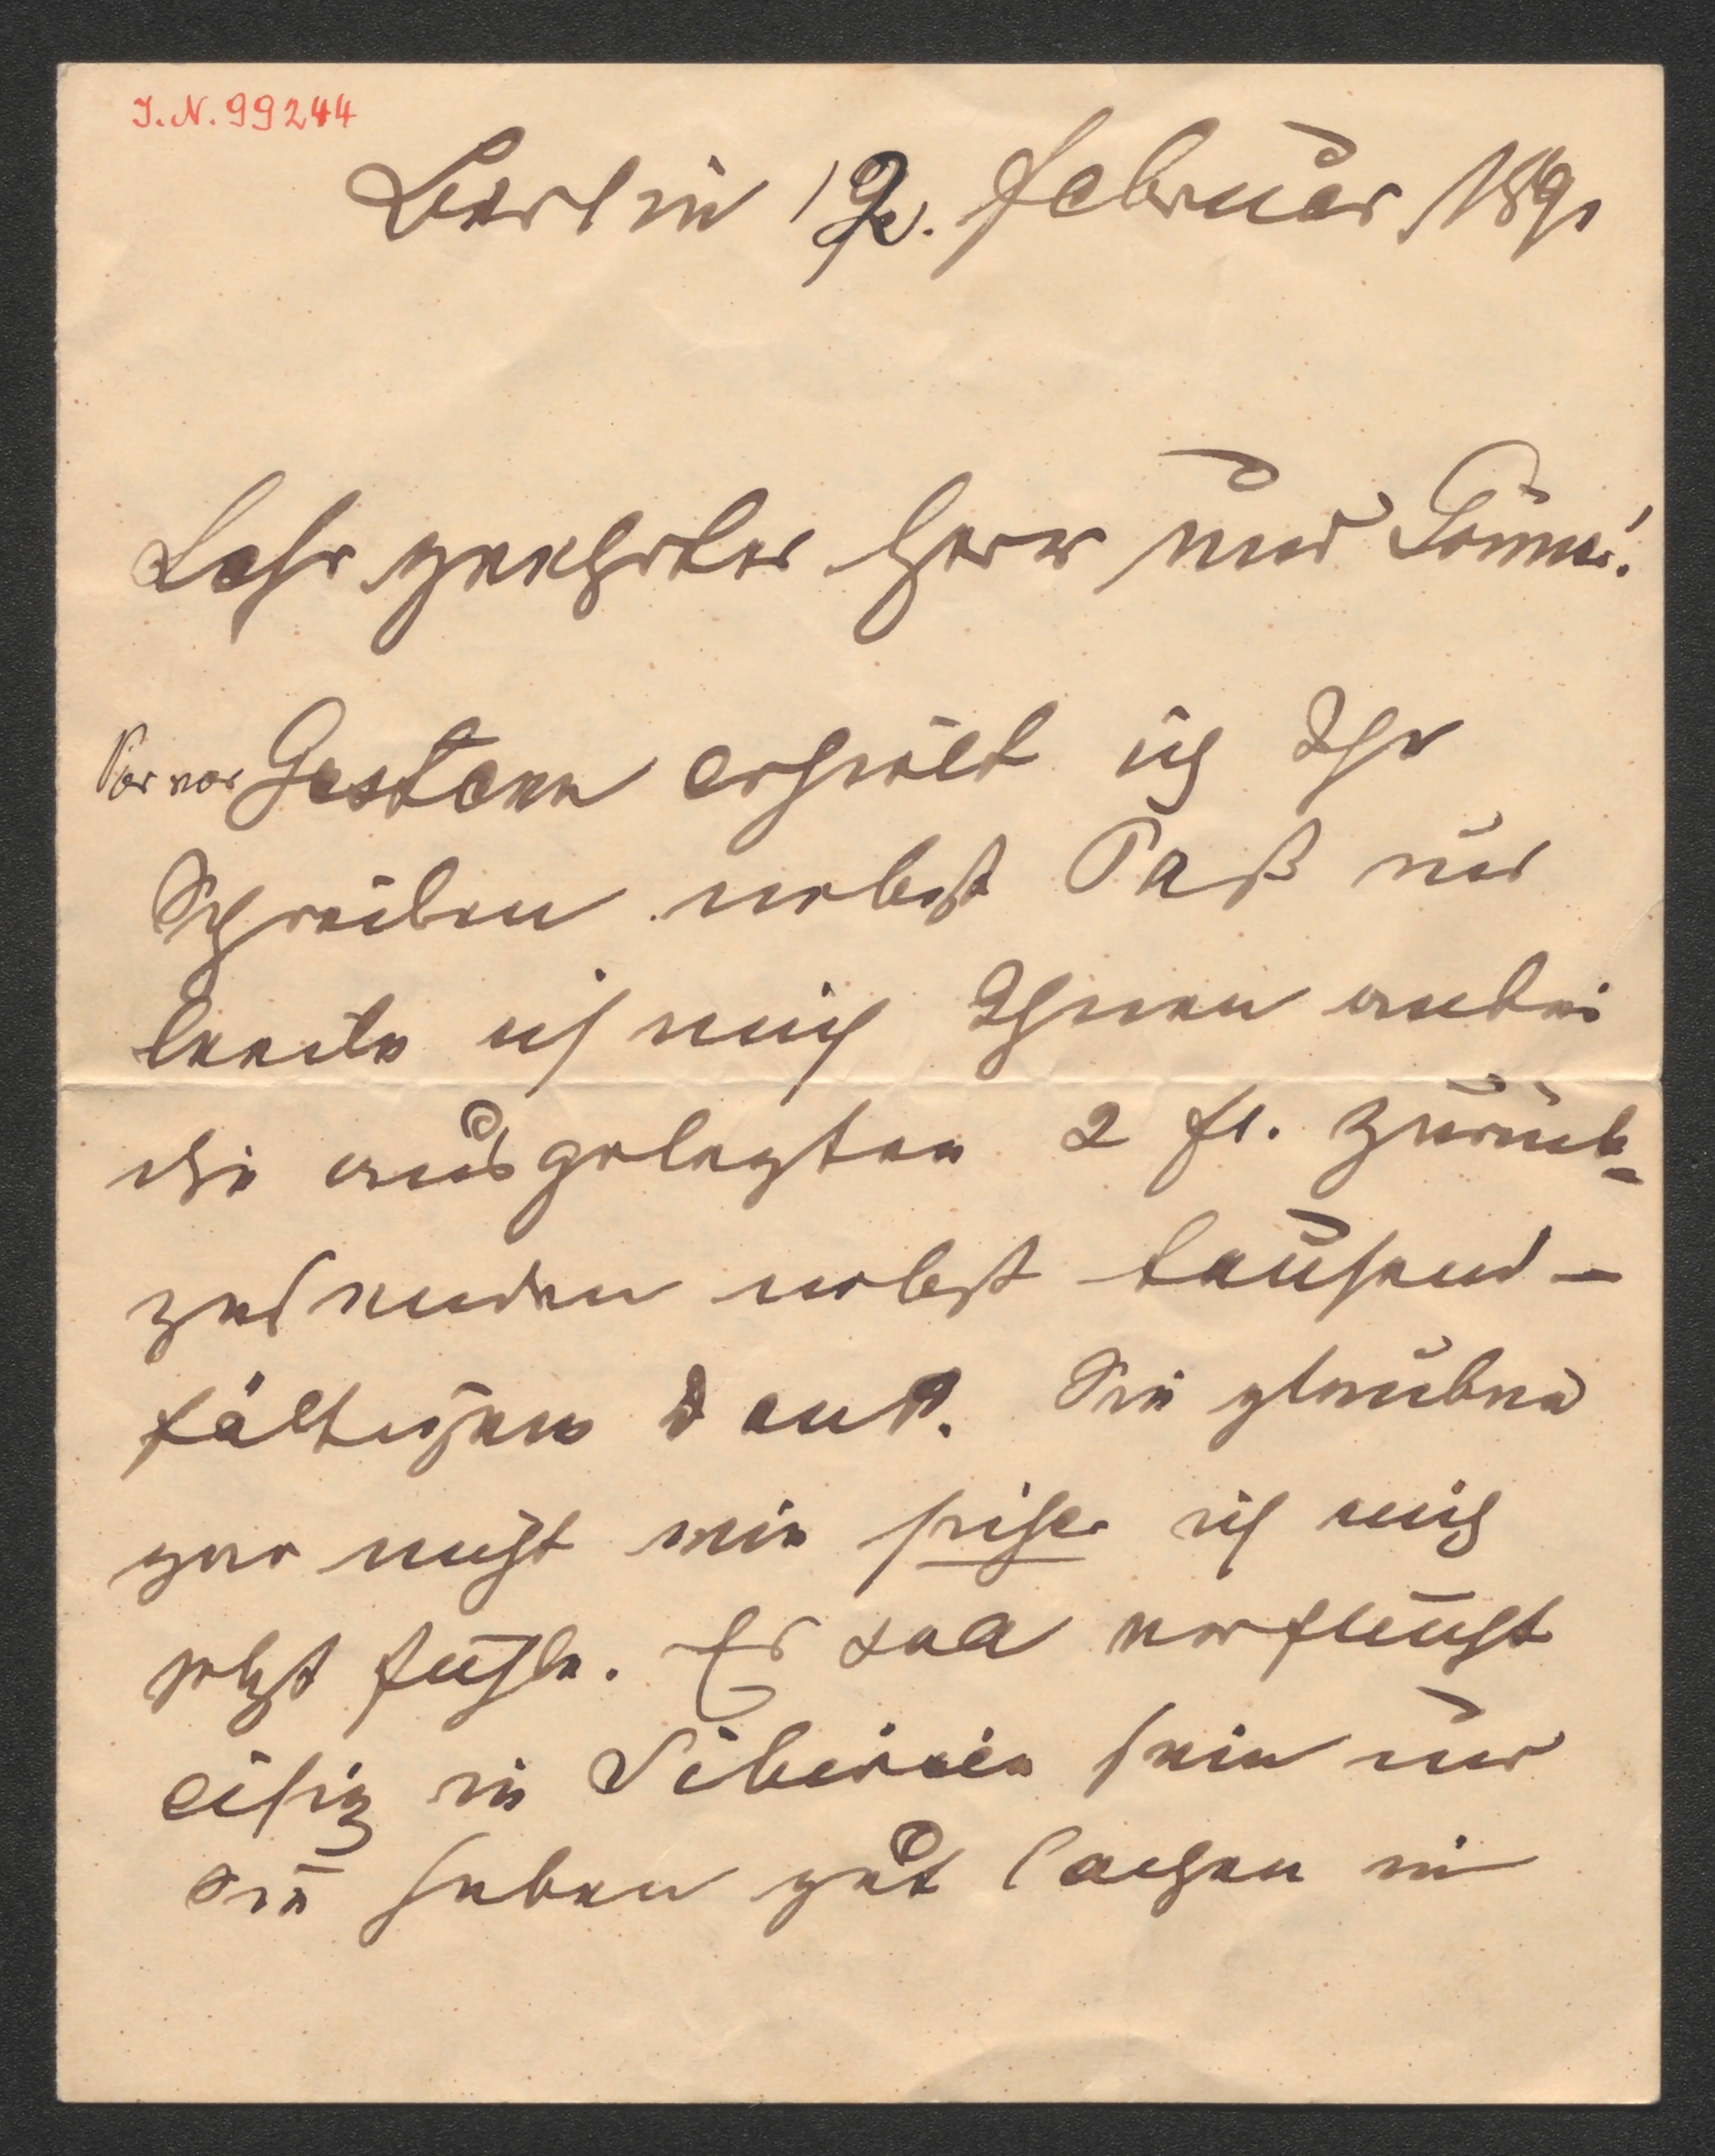 I.N. 99244
Berlin 12. Februar 1891
Sehr geehrter Herr und Gönner!
Vorvor Gestern erhielt ich Ihr
Schreiben nebst Paß und
beeile ich mich Ihnen anbei
die ausgelegten 2 fl. zurück-
zusenden nebst tausend-
fältigem Dank. Sie glauben
gar nicht wie sicher ich mich
jetzt fühle. Es soll verflucht
eisig in Sibirien sein und
Sie haben gut lachen in